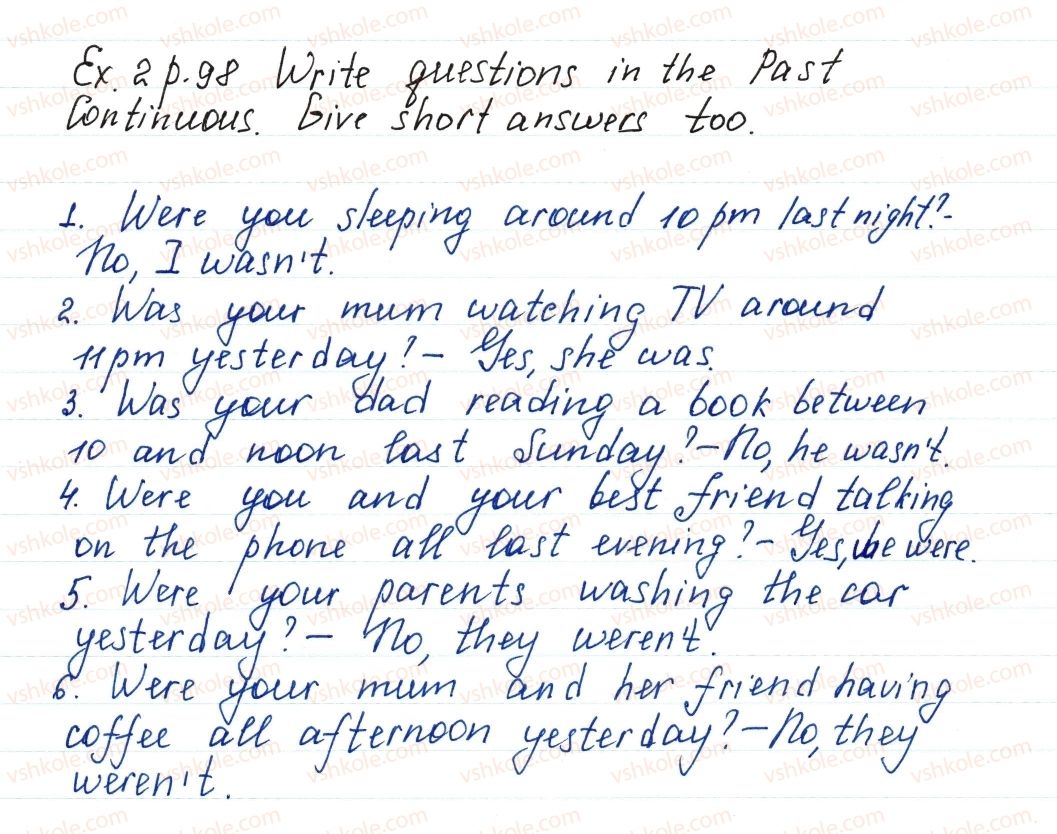 Ex. 2 p.98 Write questions in the Past
Continuous. Give short answers too.
1. Were you sleeping around 10 pm last night?-
No, I wasn't.
2. Was your mum watching TV around
11 pm yesterday? – Yes, she was.
3. Was your dad reading a book between
10 and noon last Sunday? – No, he wasn't.
4. Were you and your best friend talking
on the phone all last evening? – Yes, we were.
5. Were your parents washing the car
yesterday? – No, they weren't.
6. Were your mum and her friend having
coffee all afternoon yesterday? – No, they
weren't.
vshkole.com